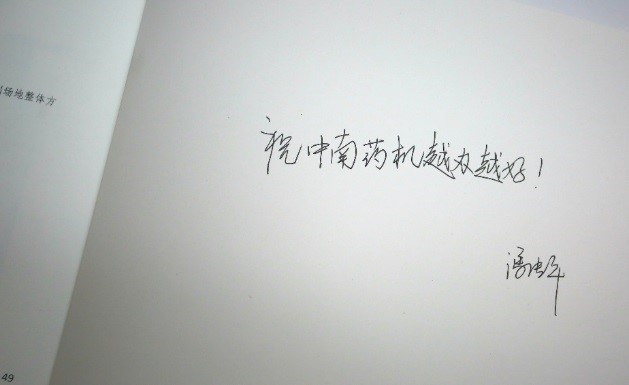 刂场地整体方
祝中南药机越办越好！
49